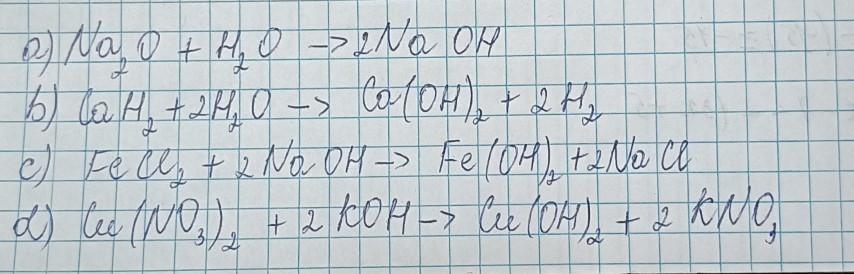 a) Na₂O + H₂O → 2NaOH
b) CaH₂ + 2H₂O → Ca(OH)₂ + 2H₂
c) FeCl₂ + 2NaOH → Fe(OH)₂ + 2NaCl
d) Cu(NO₃)₂ + 2KOH → Cu(OH)₂ + 2KNO₃